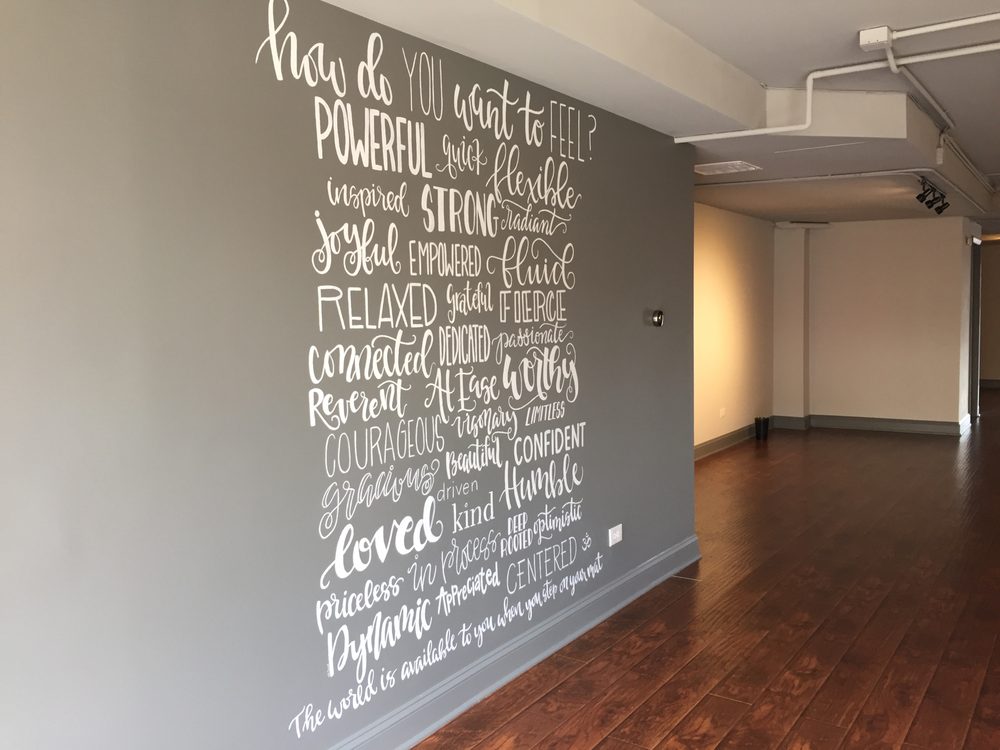 how do YOU want to FEEL?
POWERFUL quick flexible
inspired STRONG radiant
joyful EMPOWERED fluid
RELAXED grateful FIERCE
connected DEDICATED passionate
Reverent At Ease worthy
COURAGEOUS visionary LIMITLESS
gracious Beautiful CONFIDENT
driven Humble
loved kind DEEP ROOTED optimistic
priceless in process CENTERED ॐ
Dynamic Appreciated
The world is available to you when you step on your mat